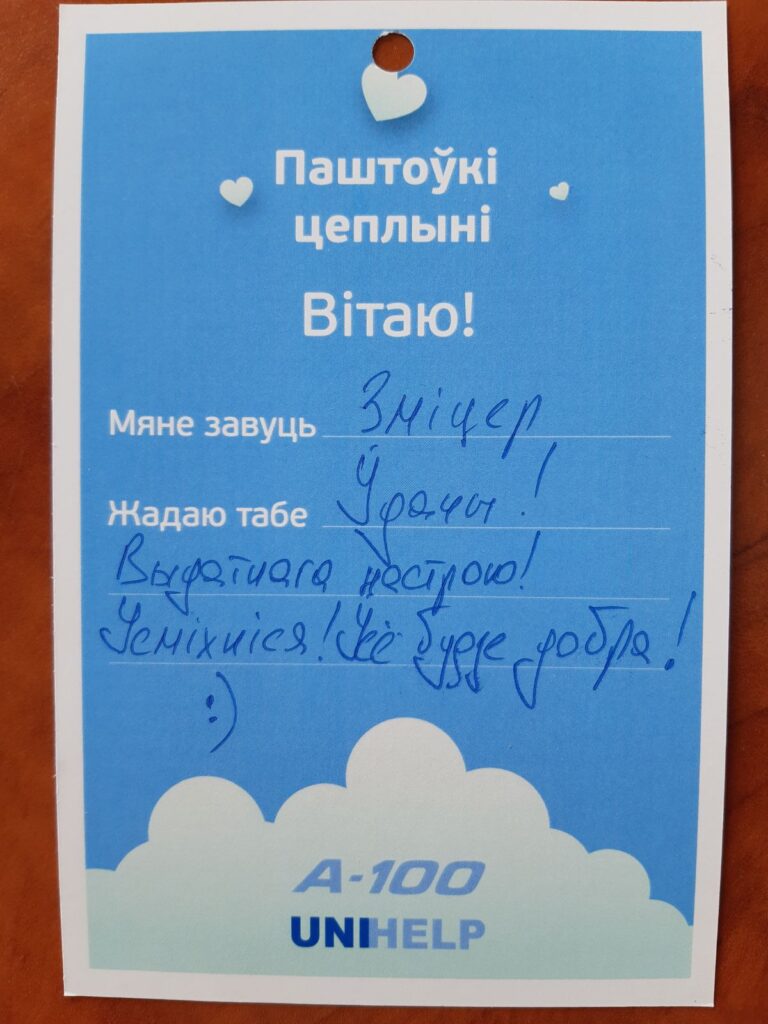 Паштоўкі
цеплыні
Вітаю!
Мяне завуць Зміцер
Жадаю табе Ўдачы!
Выдатнага настрою!
Усміхніся! Усё будзе добра!
:)
A-100
UNIHELP